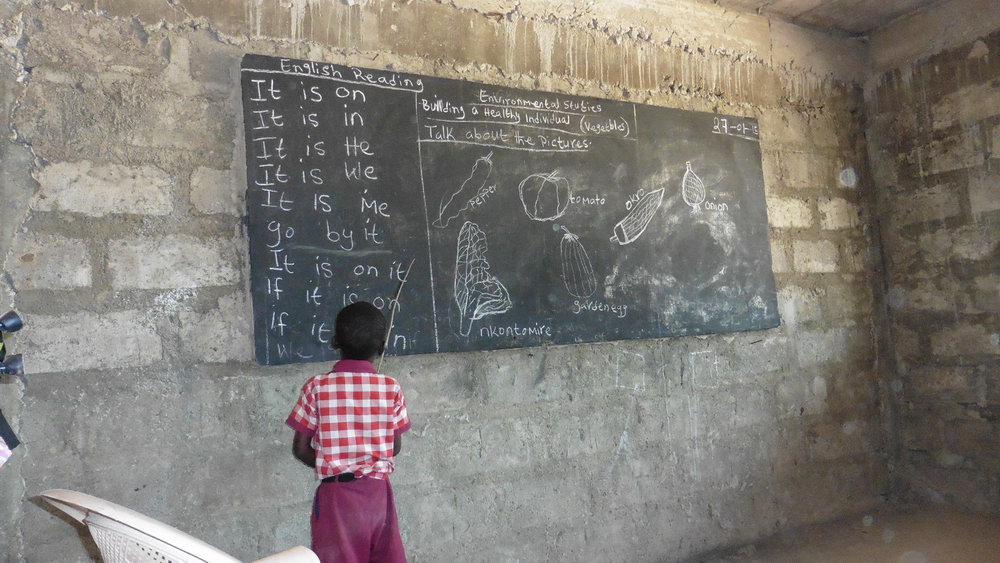 English Reading
It is on
It is in
It is He
It is We
It is Me
go by it
It is on it
If it is on
If it in
We
Environmental Studies
Building a Healthy Individual (Vegetables)
Talk about the Pictures.
Pepper
tomato
okro
onion
nkontomire
garden egg
27-01-